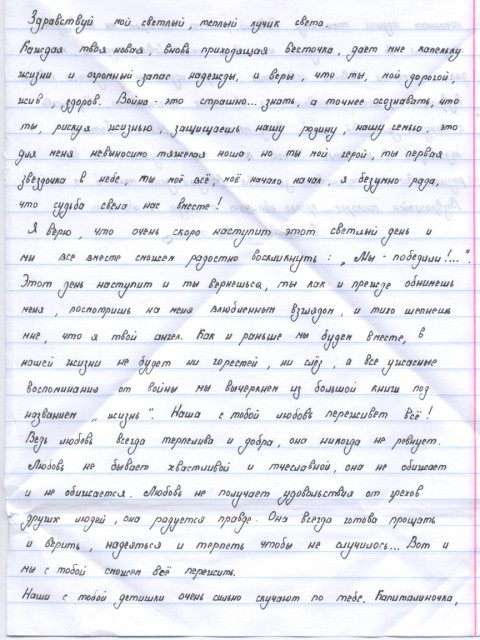 Здравствуй мой светлый, теплый лучик света.
Каждая твоя новая вновь приходящая весточка, дает мне капельку
жизни и огромный запас надежды, и веры, что ты, мой дорогой,
жив, здоров. Война - это страшно... знать, а точнее осознавать, что
ты, рискуя жизнью, защищаешь нашу родину, нашу семью. это
для меня невыносимо тяжелая ноша, но ты мой герой, ты первая
звездочка в небе, ты моё всё, моё начало начал, я безумно рада,
что судьба свела нас вместе!
Я верю, что очень скоро наступит этот светлый день и
мы все вместе сможем радостно воскликнуть: „Мы - победили!..."
Этот день наступит и ты вернешься, ты как и прежде обнимешь
меня, посмотришь на меня влюбленным взглядом, и тихо шепнешь
мне, что я твой ангел. Как и раньше мы будем вместе, в
нашей жизни не будет ни горестей, ни слёз, а все ужасные
воспоминания от войны мы вычеркнем из большой книги под
названием „жизнь". Наша с тобой любовь переживет всё!
Ведь любовь всегда терпелива и добра, она никогда не ревнует.
Любовь не бывает хвастливой и тщеславной, она не обижает
и не обижается. Любовь не получает удовольствия от грехов
других людей, она радуется правде. Она всегда готова прощать
и верить, надеяться и терпеть чтобы не случилось... Вот и
мы с тобой сможем всё пережить.
Наши с тобой детишки очень сильно скучают по тебе. Капиталиночка,